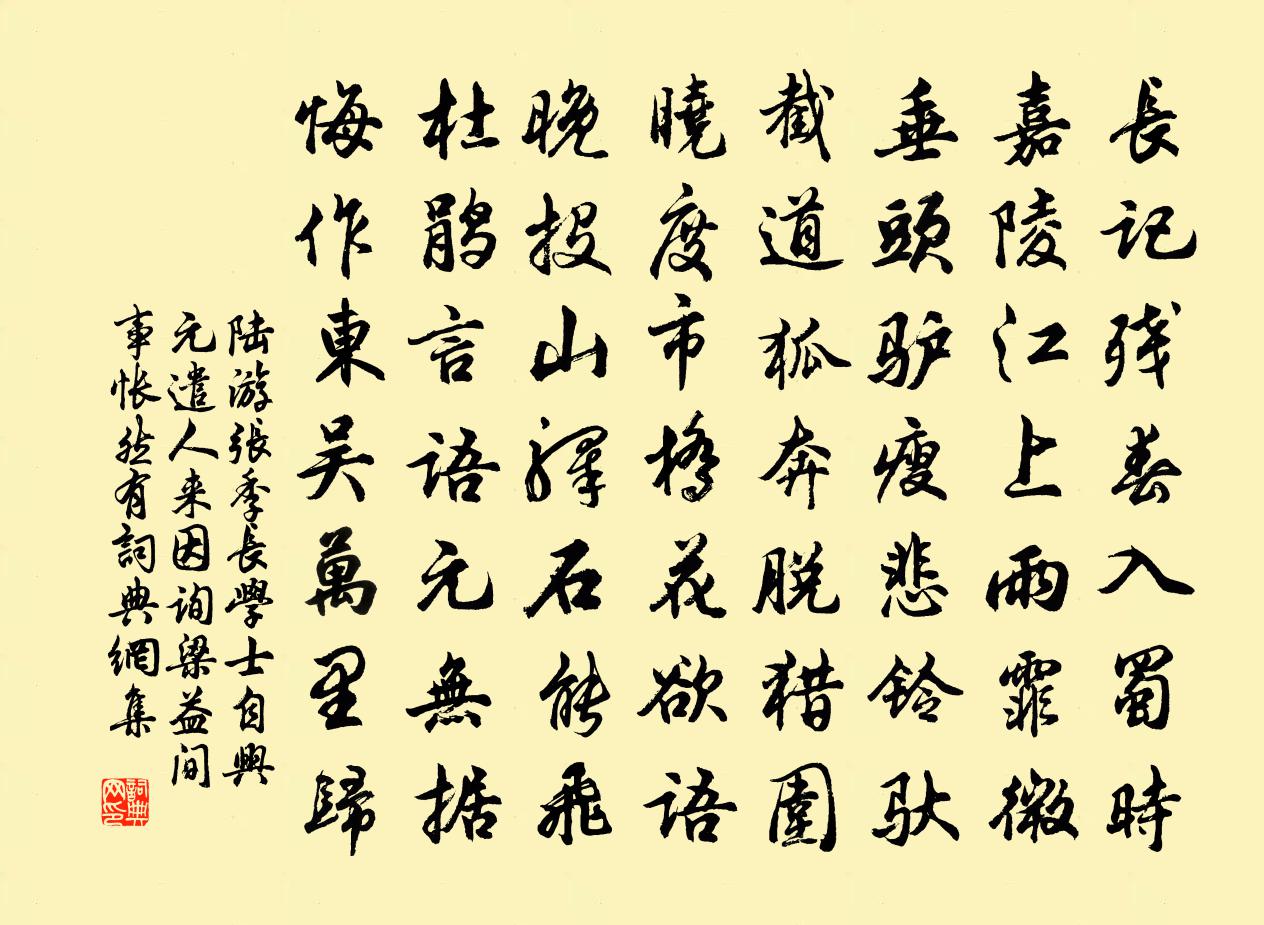 長记残春入蜀時
嘉陵江上雨霏微
垂頭驴瘦悲铃驮
截道狐奔脱猎圍
曉度市橋花欲语
晚投山驿石能飛
杜鹃言语元無据
悔作東吴萬里歸
陆游張季長學士自興
元遣人来因询梁益间
事怅然有詞典網集
詞典
网印